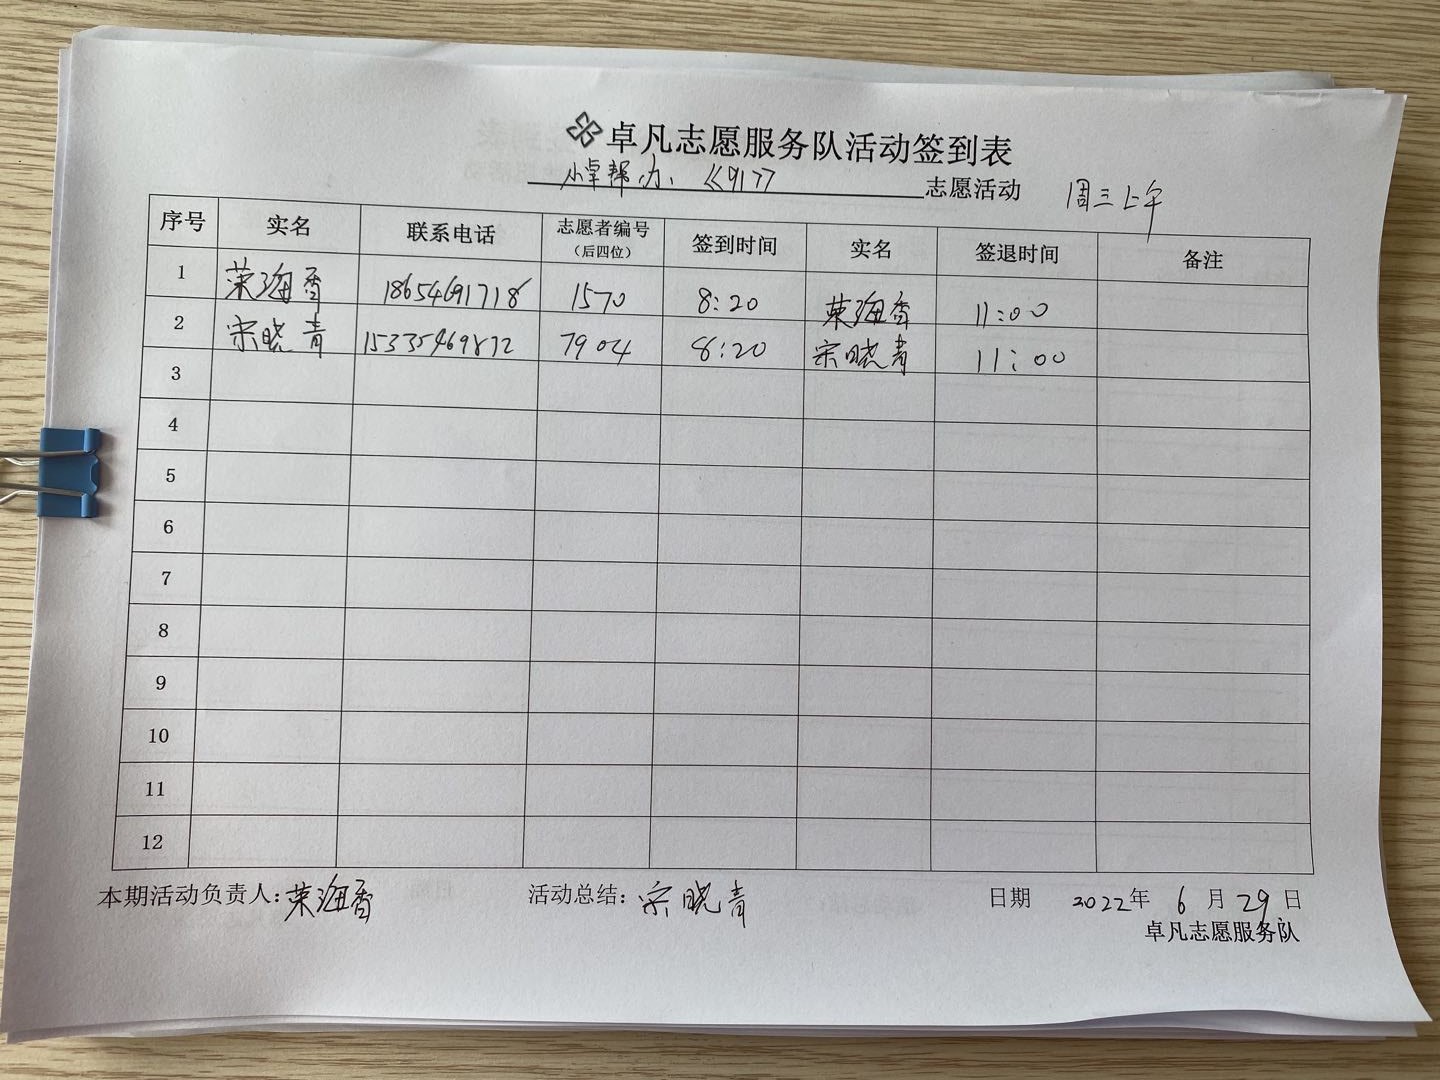 卓凡志愿服务队活动签到表
小卓帮办《91》 志愿活动 周三上午
序号 实名 联系电话 志愿者编号（后四位） 签到时间 实名 签退时间 备注
1 荣海香 18654691718 1570 8:20 荣海香 11:00
2 宋晓青 15335469872 7904 8:20 宋晓青 11:00
3
4
5
6
7
8
9
10
11
12
本期活动负责人:荣海香 活动总结:宋晓青 日期 2022年6月29日
卓凡志愿服务队